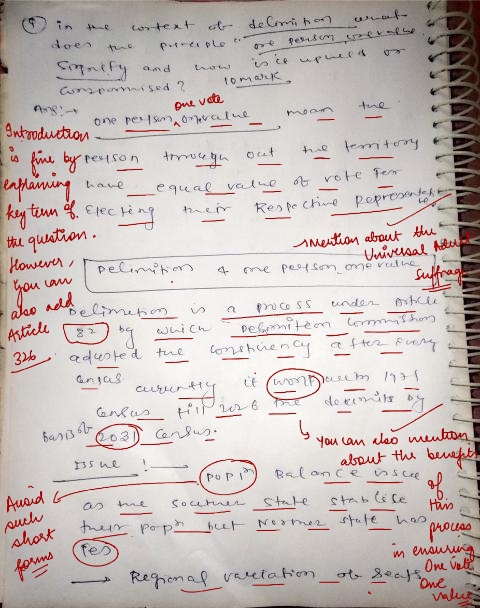 9 in the context of delimition what
does the principle "one person one value
signify and how is it upheld or
compromised? 10 mark
Ans:→ one person one vote one value mean the
Introduction is fine by explaining key term of the question. However, you can also add Article 326
person through out the territory
have equal value of vote for
Electing their Respective Representative
Mention about the Universal Adult Suffrage
Delimition & one person one value
Delimition is a process under Article
82 by which Delimition Commission
adjusted the constituency after every
census currently it work 1971
census till 2026 the by
Basis of 2031 Census.
You can also mention about the benefits of this process in ensuring One vote One value
Issue !→ popln Balance issue
Avoid such short forms
as the southern state stabilise
their popn but Norther state has
→ Regional variation of Seats